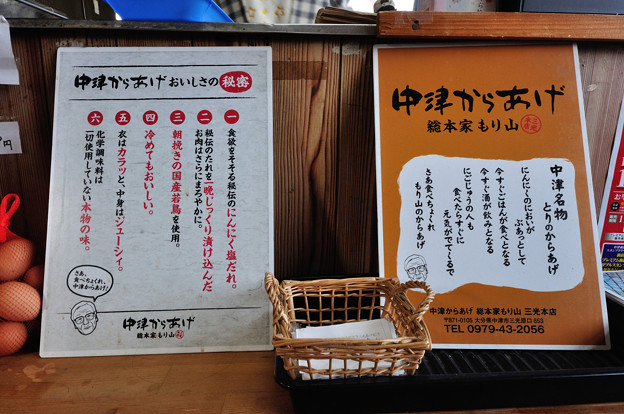 中津からあげおいしさの秘密
一 食欲をそそる秘伝のにんにく塩だれ。
二 秘伝のたれを一晩じっくり漬け込んだ
お肉はさらにまろやかに。
三 朝挽きの国産若鳥を使用。
四 冷めてもおいしい。
五 衣はカラッと、中身はジューシィ。
六 化学調味料は
一切使用していない本物の味。
さぁ、
食べちょくれ、
中津からあげ!
中津からあげ
総本家もり山
中津からあげ
総本家もり山
中津名物
とりのからあげ
にんにくのにおいが
ぷあっとして
今すぐごはんが食べとなる
今すぐ酒が飲みとなる
にじゅうの人も
食べたらすぐに
元気がでてくるで
さあ食べちょくれ
もり山のからあげ
中津からあげ 総本家もり山 三光本店
〒871-0105 大分県中津市三光原口 653
TEL 0979-43-2056
円